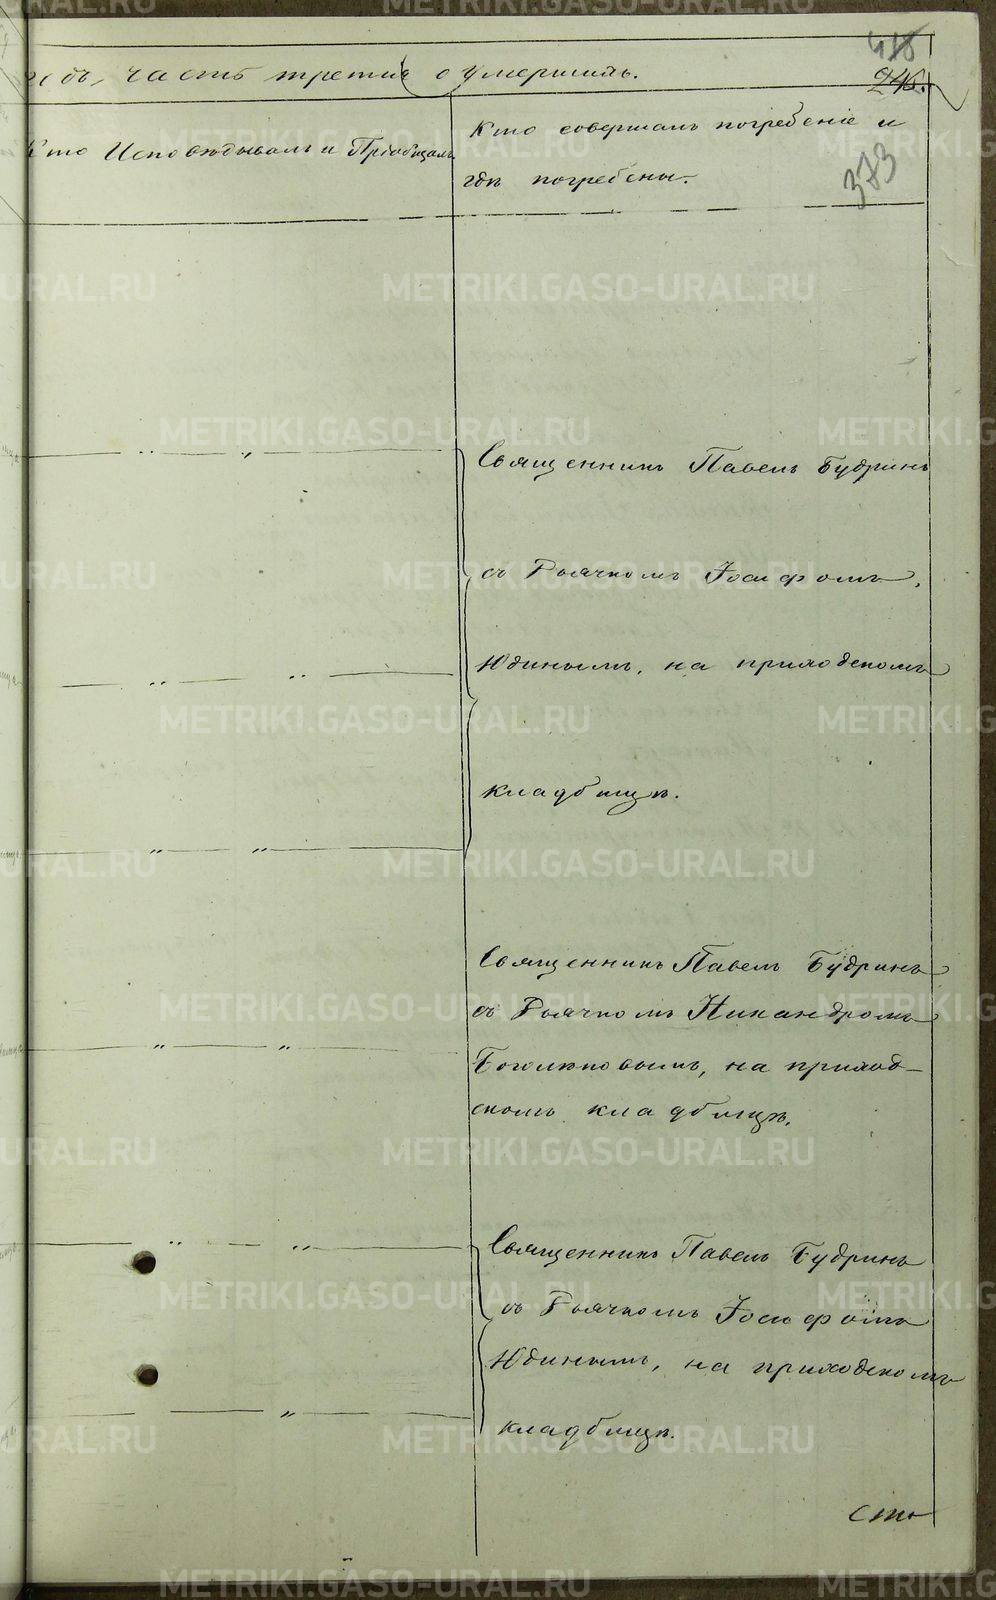 418
246.
годъ, часть третия о умершихъ.
Кто Исповѣдывалъ и Пріобщалъ
Кто совершалъ погребеніе и
гдѣ погребены.
373
Священникъ Павелъ Будринъ
съ Дьячкомъ Іосифомъ
Юдинымъ, на приходскомъ
кладбищѣ.
Священникъ Павелъ Будринъ
съ Дьячкомъ Никандромъ
Боголюбовымъ, на приход-
скомъ кладбищѣ.
Священникъ Павелъ Будринъ
съ Дьячкомъ Іосифомъ
Юдинымъ, на приходскомъ
кладбищѣ.
METRIKI.GASO-URAL.RU